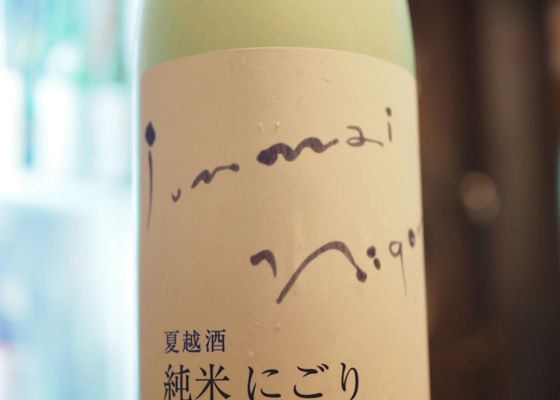 junmai
Nigo
夏越酒
純米 にごり